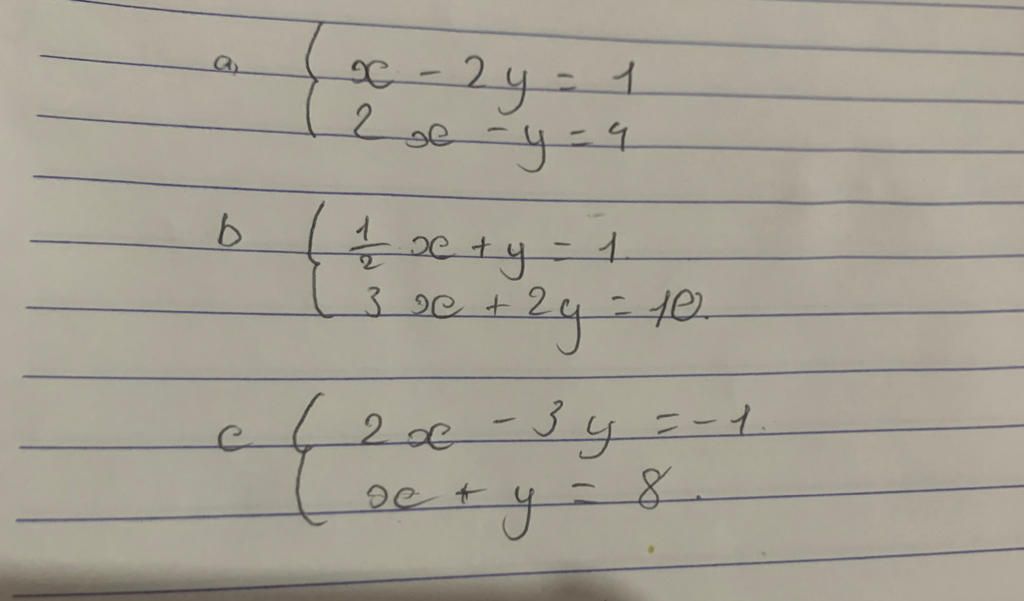 a, { x - 2y = 1
2x - y = 4
b { 1/2 x + y = 1
3x + 2y = 10.
c { 2x - 3y = -1.
x + y = 8.